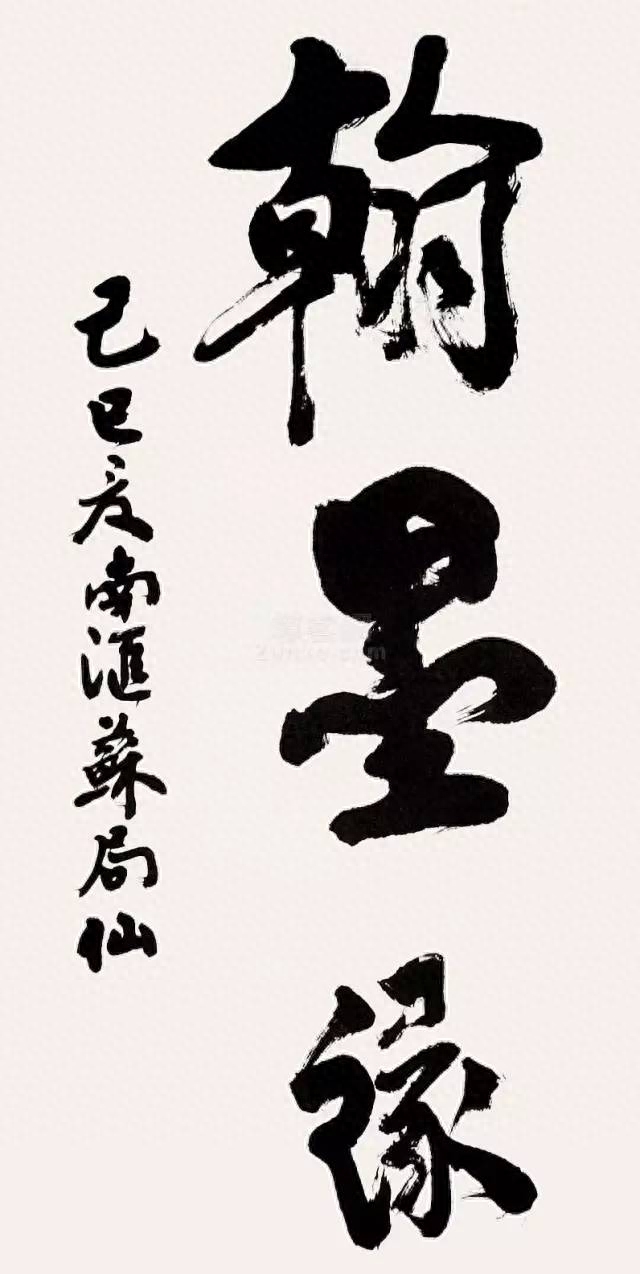 翰墨缘
己巳夏南汇苏局仙